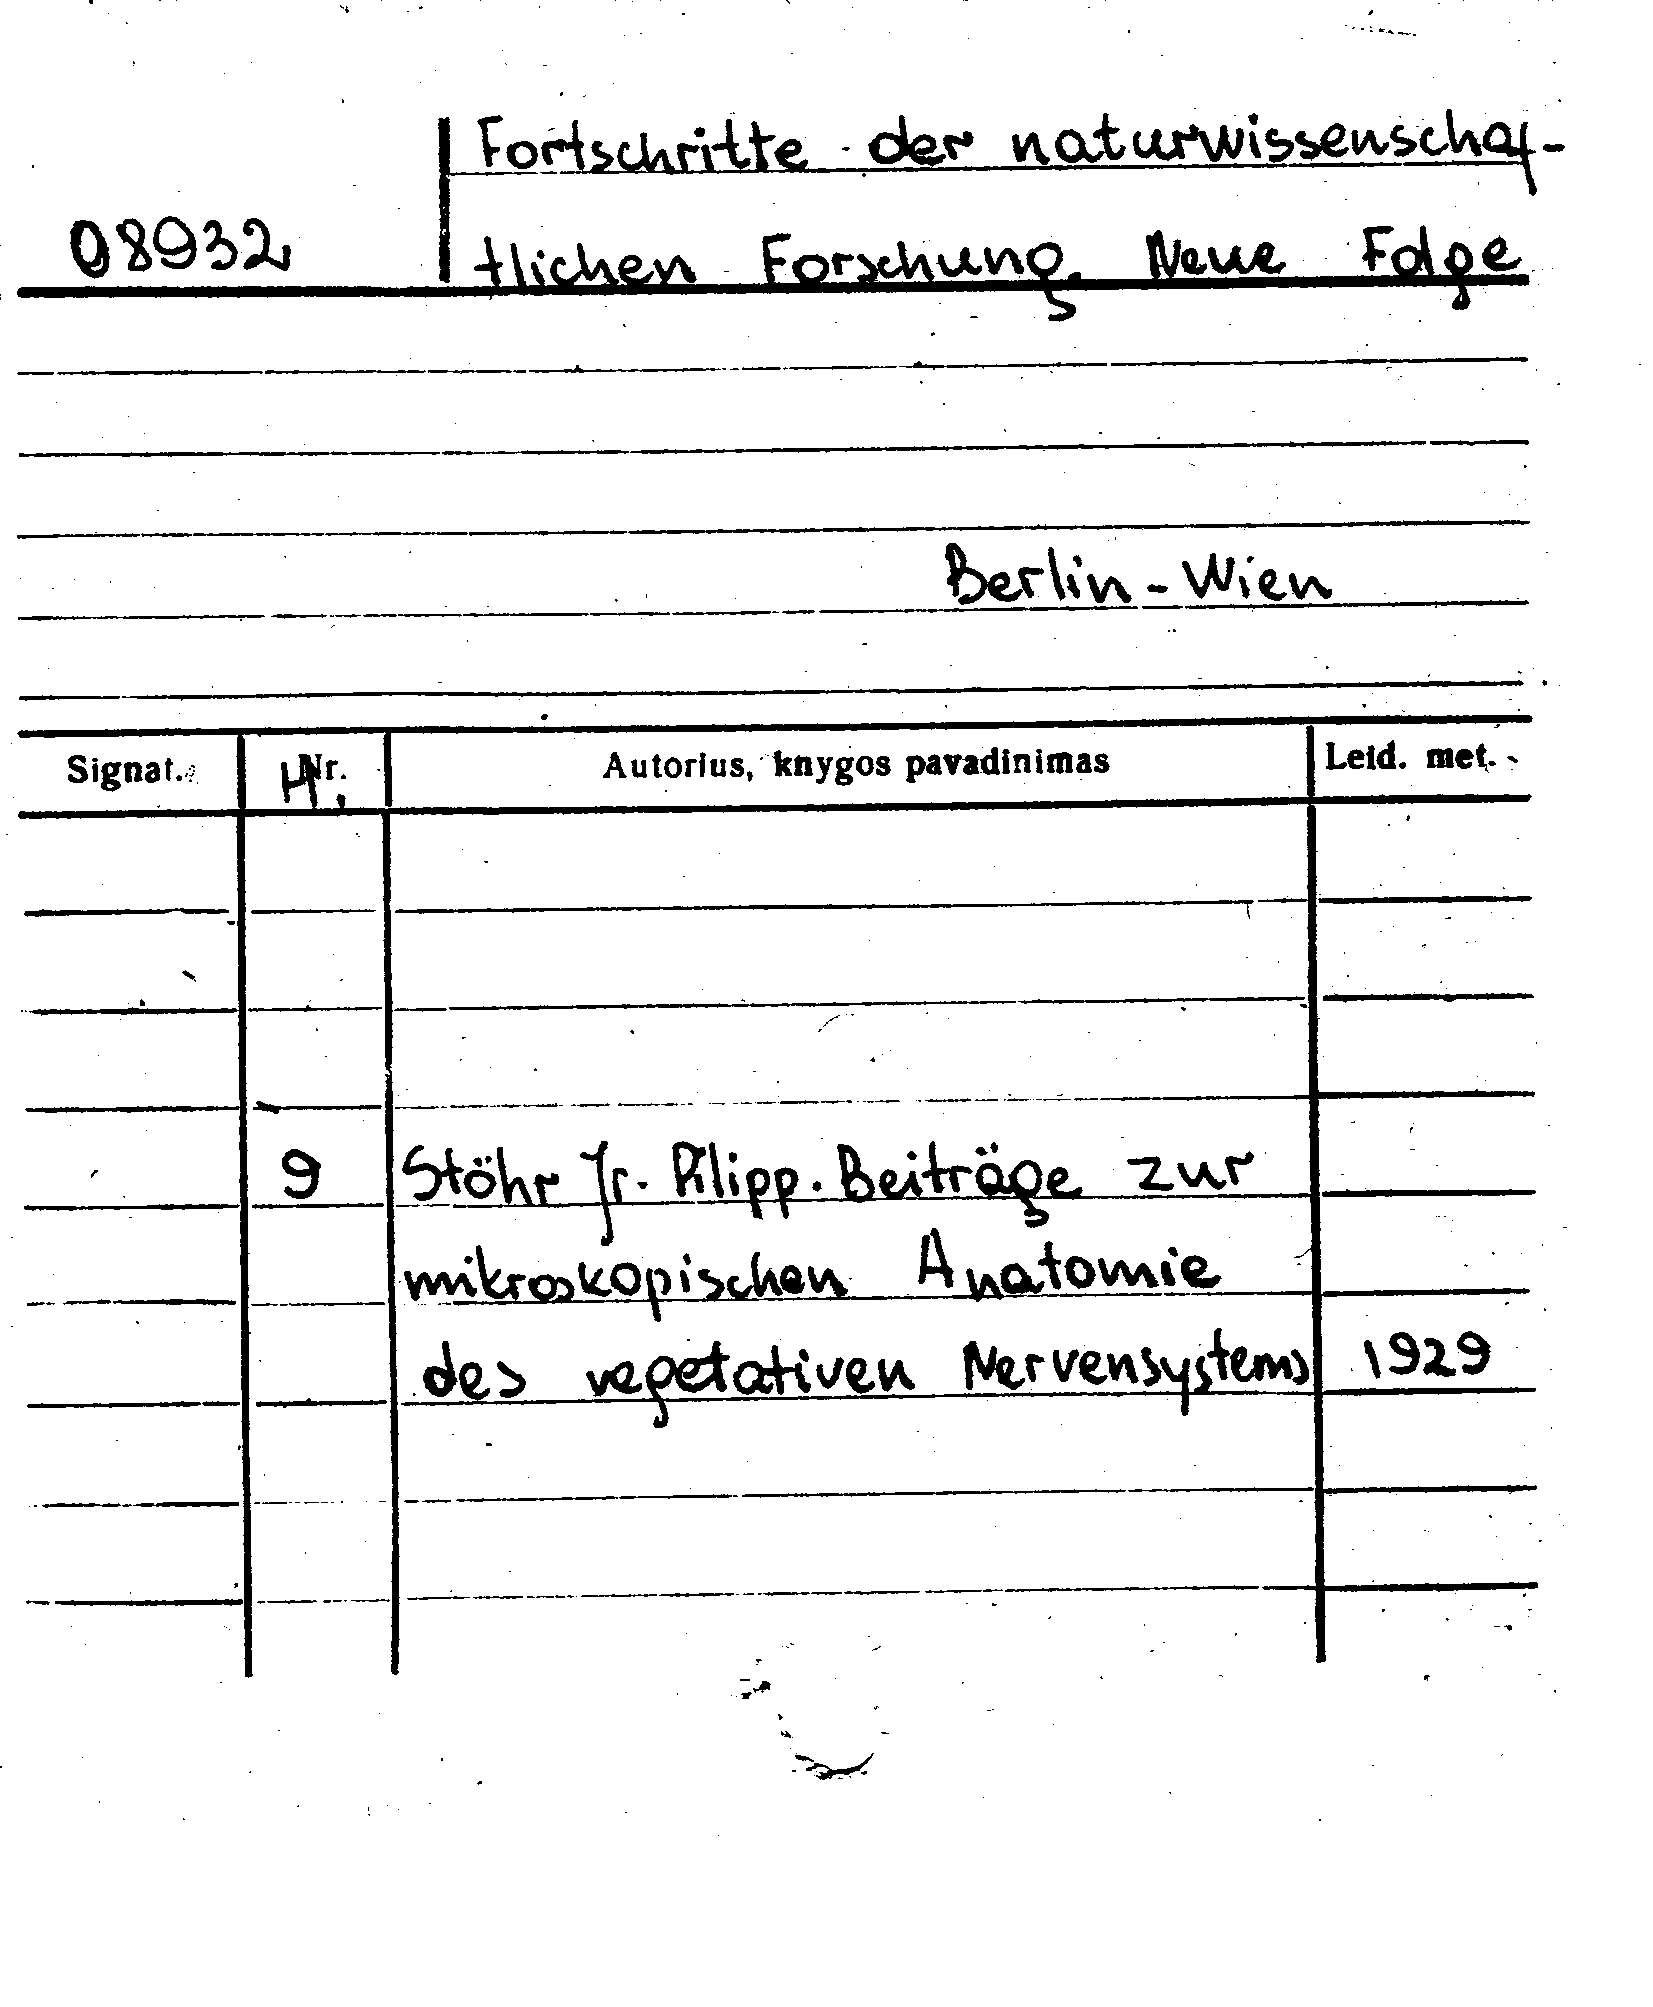 Fortschritte der naturwissenschaf-
08932 tlichen Forschung. Neue Folge
Berlin - Wien
Signat. H. Nr. Autorius, knygos pavadinimas Leid. met.
9 Stöhr Jr. Pilipp. Beiträge zur
mikroskopischen Anatomie
des vegetativen Nervensystems 1929